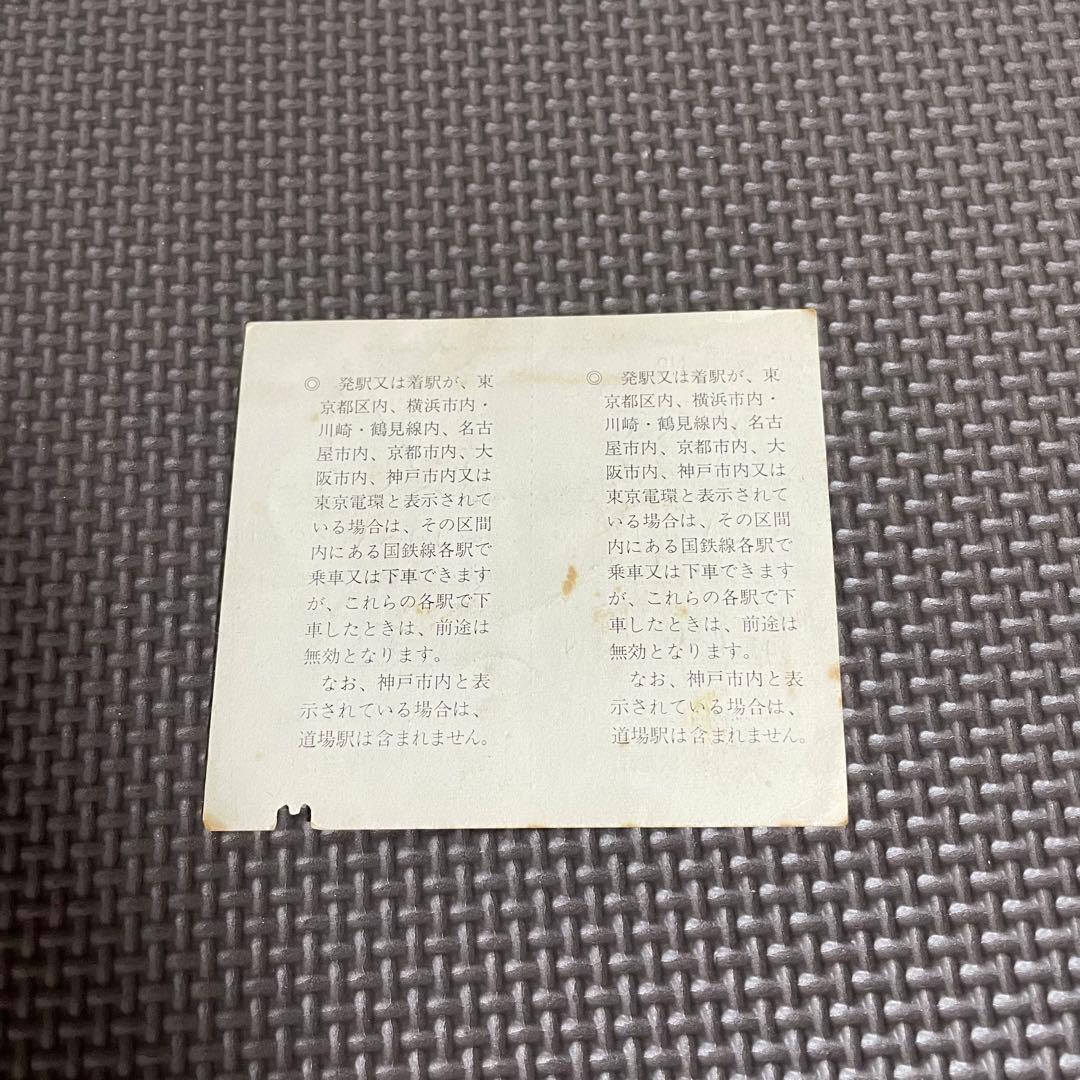 ◎ 発駅又は着駅が、東
京都区内、横浜市内・
川崎・鶴見線内、名古
屋市内、京都市内、大
阪市内、神戸市内又は
東京電環と表示されて
いる場合は、その区間
内にある国鉄線各駅で
乗車又は下車できます
が、これらの各駅で下
車したときは、前途は
無効となります。
なお、神戸市内と表
示されている場合は、
道場駅は含まれません。
◎ 発駅又は着駅が、東
京都区内、横浜市内・
川崎・鶴見線内、名古
屋市内、京都市内、大
阪市内、神戸市内又は
東京電環と表示されて
いる場合は、その区間
内にある国鉄線各駅で
乗車又は下車できます
が、これらの各駅で下
車したときは、前途は
無効となります。
なお、神戸市内と表
示されている場合は、
道場駅は含まれません。